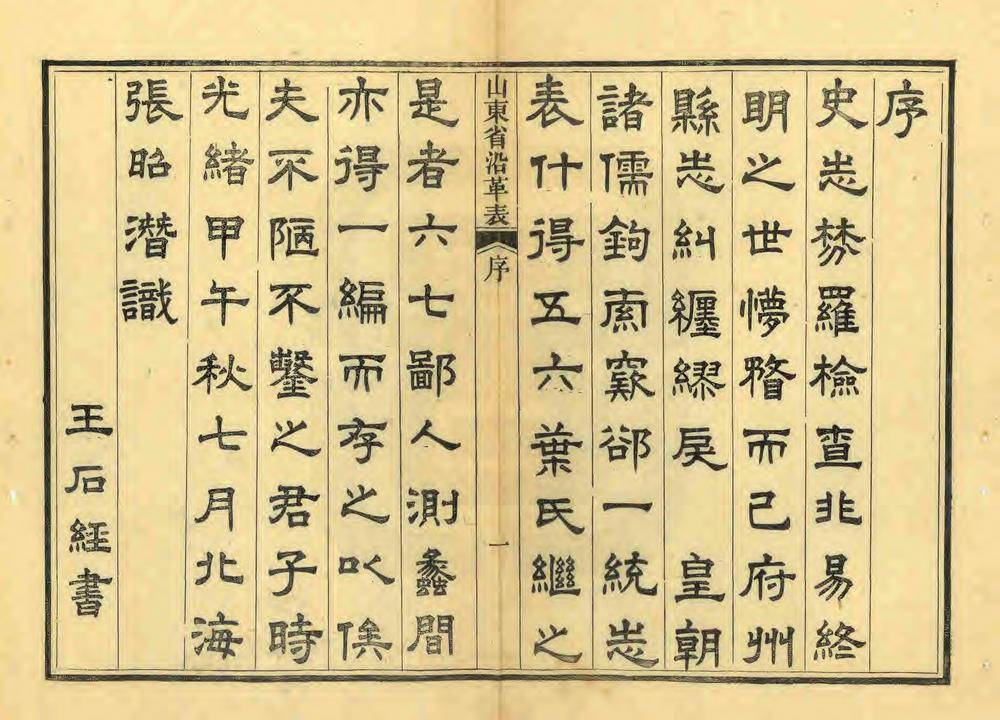 序
史志棼羅檢查非易終
明之世懵瞀而已府州
縣志糾纏繆戾 皇朝
諸儒鉤索窾郤一統志
表什得五六葉氏繼之
山東省沿革表 序 一
是者六七鄙人測蠡間
亦得一編而存之以俟
夫不陋不鑿之君子時
光緒甲午秋七月北海
張昭潛識
王石經書